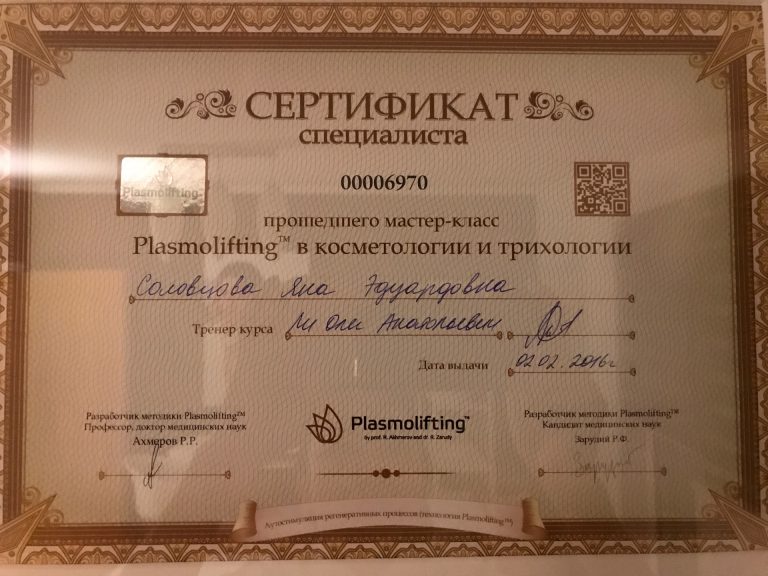 СЕРТИФИКАТ
специалиста
Plasmolifting
00006970
прошедшего мастер-класс
Plasmolifting™ в косметологии и трихологии
Соловцова Яна Эдуардовна
Тренер курса Ли Олег Анатольевич
Дата выдачи 02.02.2016г
Разработчик методики Plasmolifting™
Профессор, доктор медицинских наук
Ахмеров Р.Р.
Plasmolifting™
by prof. R. Akhmerov and dr. R. Zarudy
Разработчик методики Plasmolifting™
Кандидат медицинских наук
Зарудий Р.Ф.
Аутостимуляция регенеративных процессов (технология Plasmolifting™)